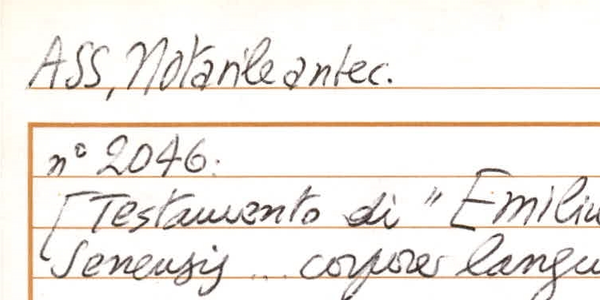 ASS, Notarile antec.
n° 2046.
[Testamento di "Emiliu
Senensis... corpore langu